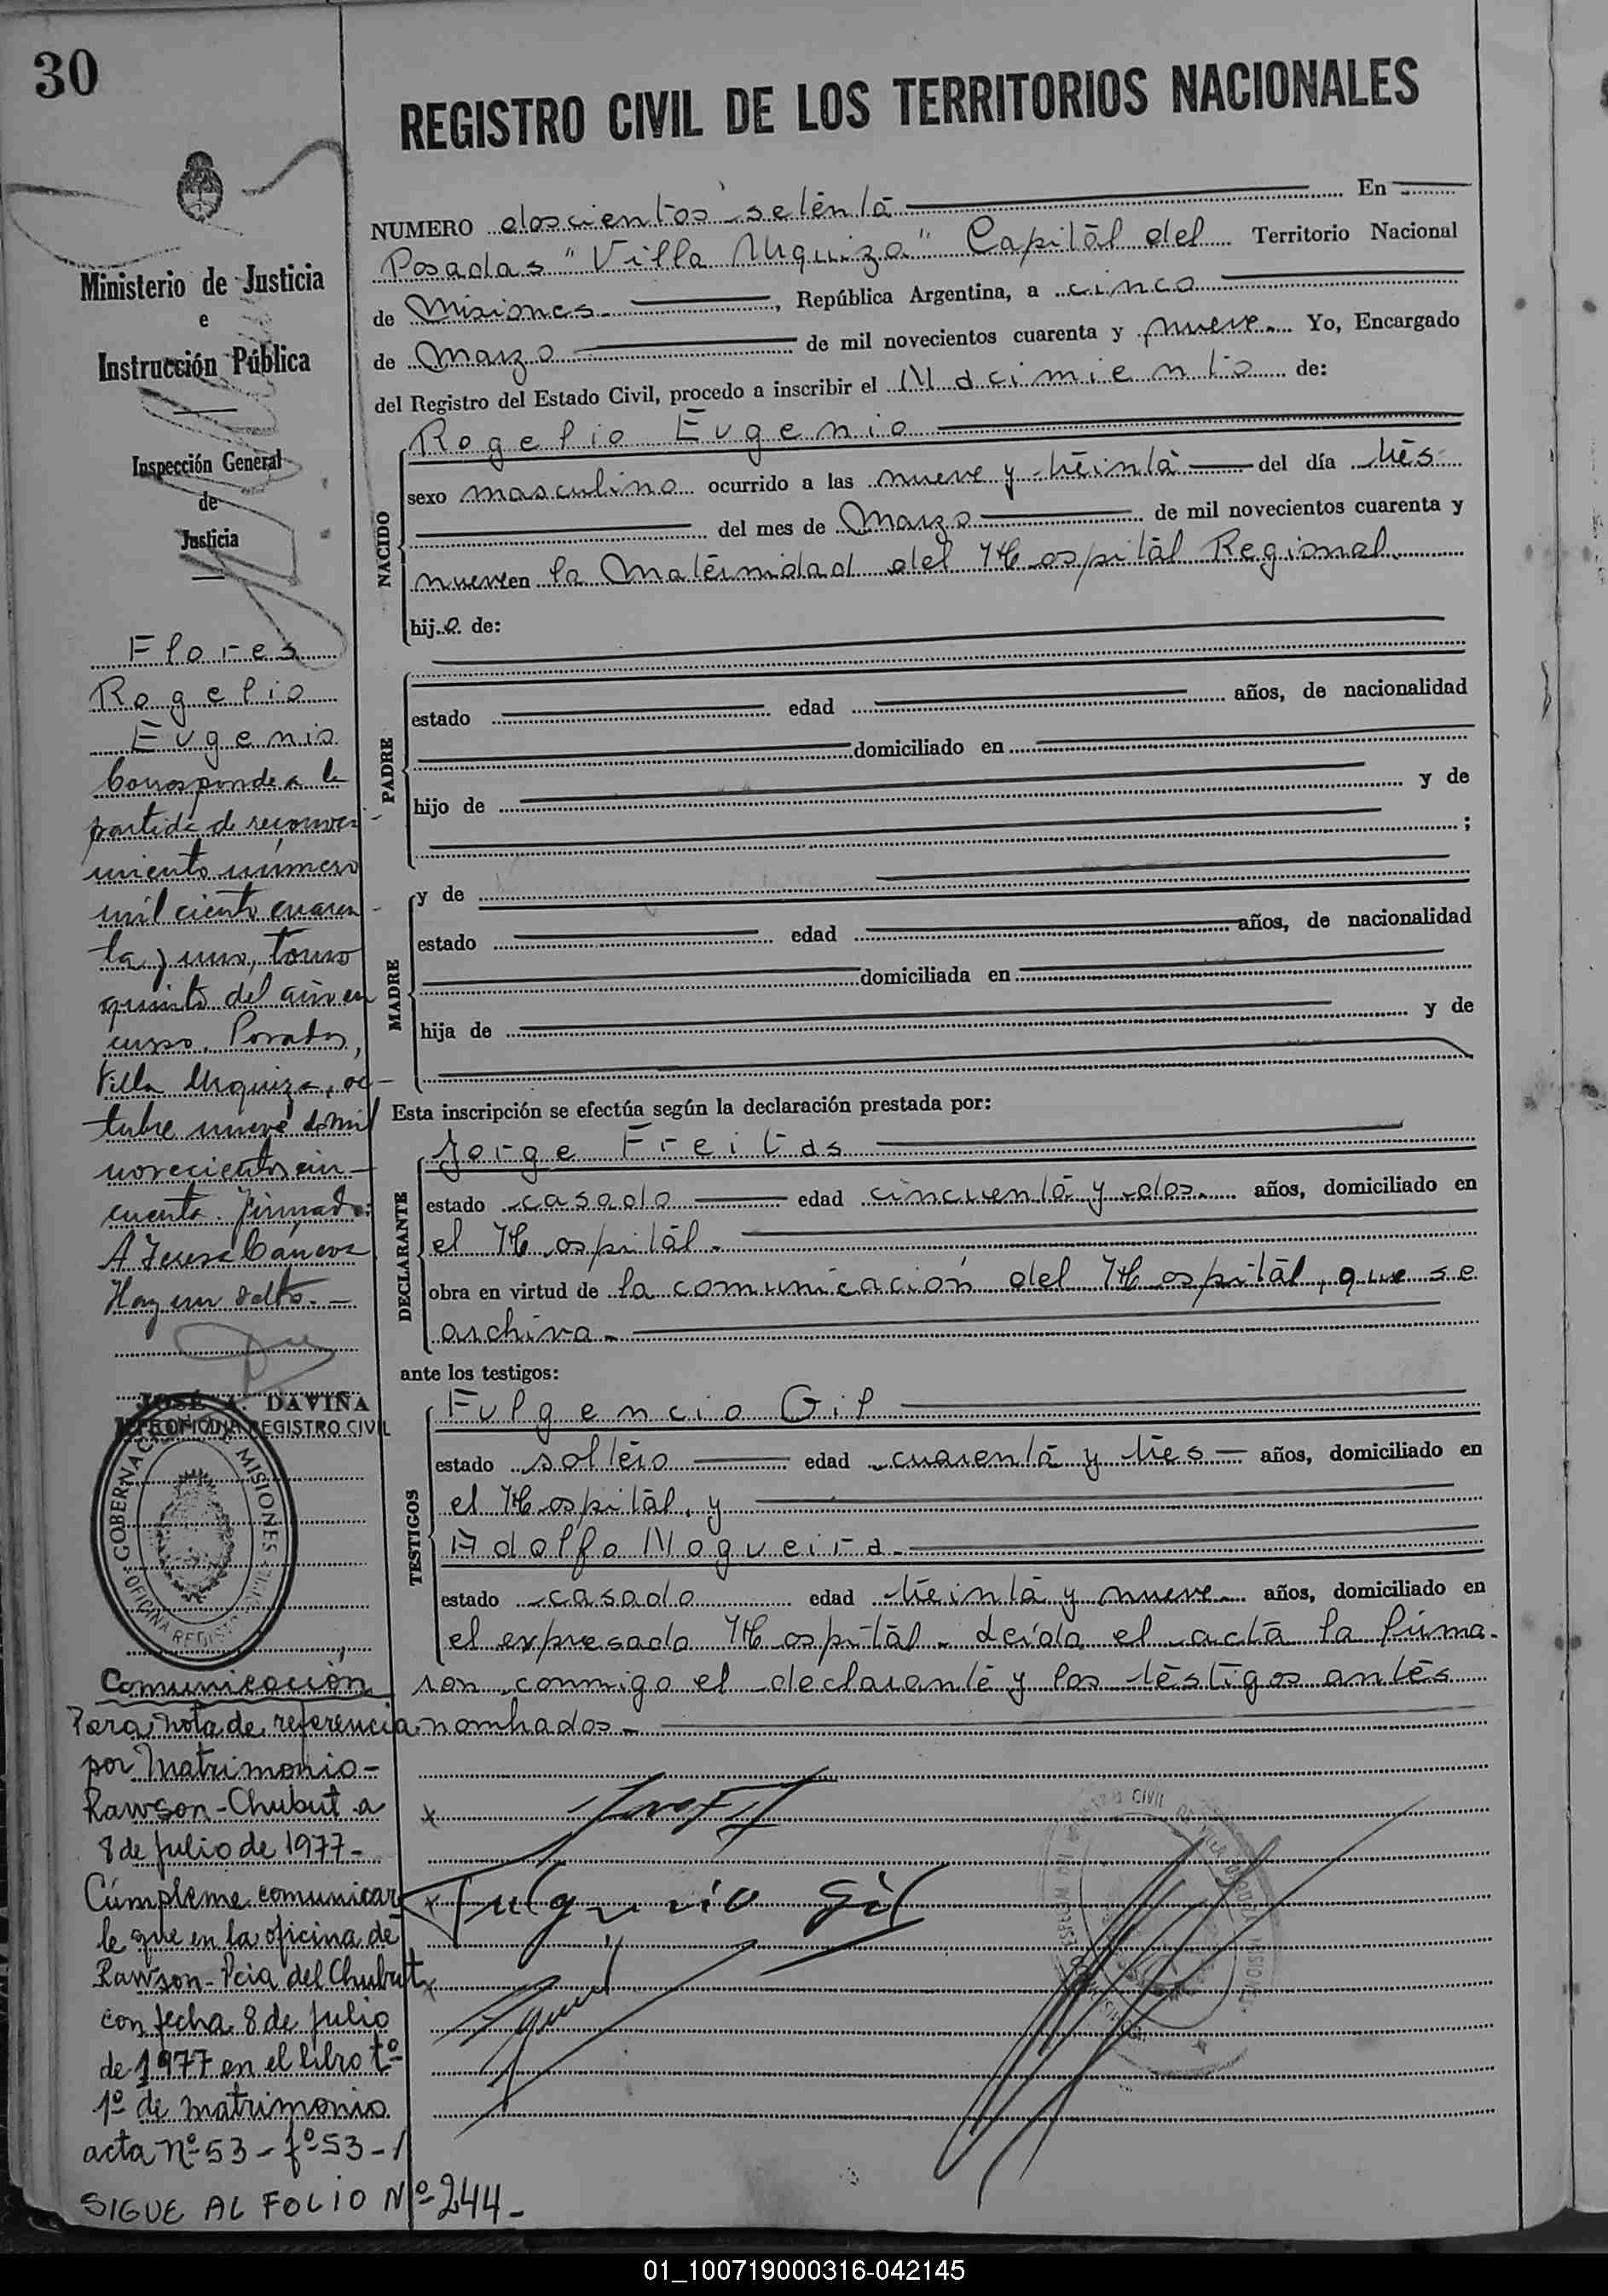 30
REGISTRO CIVIL DE LOS TERRITORIOS NACIONALES
Ministerio de Justicia
e
Instrucción Pública
Inspección General
de
Justicia
NUMERO doscientos setenta En
Posadas "Villa Urquiza" Capital del Territorio Nacional
de Misiones. , República Argentina, a cinco
de Marzo de mil novecientos cuarenta y nueve. Yo, Encargado
del Registro del Estado Civil, procedo a inscribir el Nacimiento de:
NACIDO
Rogelio Eugenio
sexo masculino ocurrido a las nueve y treinta del día tres
del mes de Marzo de mil novecientos cuarenta y
nueve en la Maternidad del Hospital Regional.
hijo de:
PADRE
estado edad años, de nacionalidad
domiciliado en
hijo de y de
;
MADRE
y de
estado edad años, de nacionalidad
domiciliada en
hija de y de
Esta inscripción se efectúa según la declaración prestada por:
DECLARANTE
Jorge Freitas
estado casado edad cincuenta y dos. años, domiciliado en
el Hospital.
obra en virtud de la comunicación del Hospital, que se
archiva.
ante los testigos:
TESTIGOS
Fulgencio Gil
estado soltero edad cuarenta y tres años, domiciliado en
el Hospital, y
Adolfo Nogueira.
estado casado edad treinta y nueve. años, domiciliado en
el expresado Hospital. Leída el acta la firma-
ron conmigo el declarante y los testigos antes
nombrados.
Fulgencio Gil
Flores
Rogelio
Eugenio
Corresponde a la
partida de reconoci-
miento número
mil ciento cuaren-
ta y uno, tomo
quinto del año en
curso. Posadas,
Villa Urquiza, oc-
tubre nueve de mil
novecientos cin-
cuenta. Firmado:
A Teresa Cánova
Hay un sello.
JOSÉ A. DAVIÑA
JEFE OFICINA REGISTRO CIVIL
GOBERNACION MISIONES
OFICINA REGISTRO CIVIL
Comunicación
Para nota de referencia
por Matrimonio-
Rawson-Chubut a
8 de Julio de 1977-
Cúmpleme comunicar
le que en la oficina de
Rawson-Pcia del Chubut
con fecha 8 de Julio
de 1977 en el libro tº
1º de matrimonio
acta Nº 53 - fº 53 -
SIGUE AL FOLIO Nº 244-
01_100719000316-042145